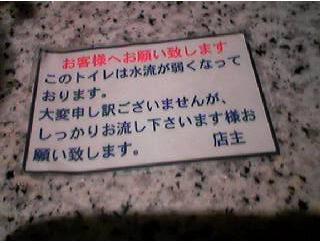 お客様へお願い致します
このトイレは水流が弱くなって
おります。
大変申し訳ございませんが、
しっかりお流し下さいます様お
願い致します。 店主